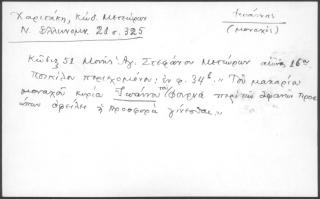 Χαριτάκη, Κώδ. Μετεώρων
Ν. Ἑλληνομν. 21 σ. 325
Ἰωάννης
(μοναχός)
Κώδιξ 51 Μονῆς Ἁγ. Στεφάνου Μετεώρων αἰῶνος 16ου
Ποικίλου περιεχομένου: ἐν φ. 34β. "Τοῦ μακαρίου
μοναχοῦ κυρίου Ἰωάννου τοῦ Φουρνᾶ περὶ τῆς
ὀφείλει ἡ προσφορὰ γίνεσθαι"